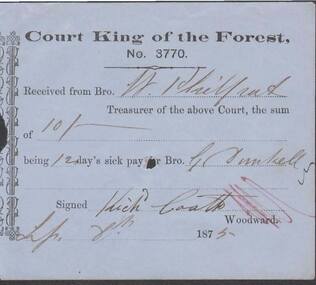 Court King of the Forest,
No. 3770.
Received from Bro. W.
Treasurer of the above Court, the sum
of 10/-
being 12 day's sick pay for Bro. G.
Signed Richd
Woodward.
1875